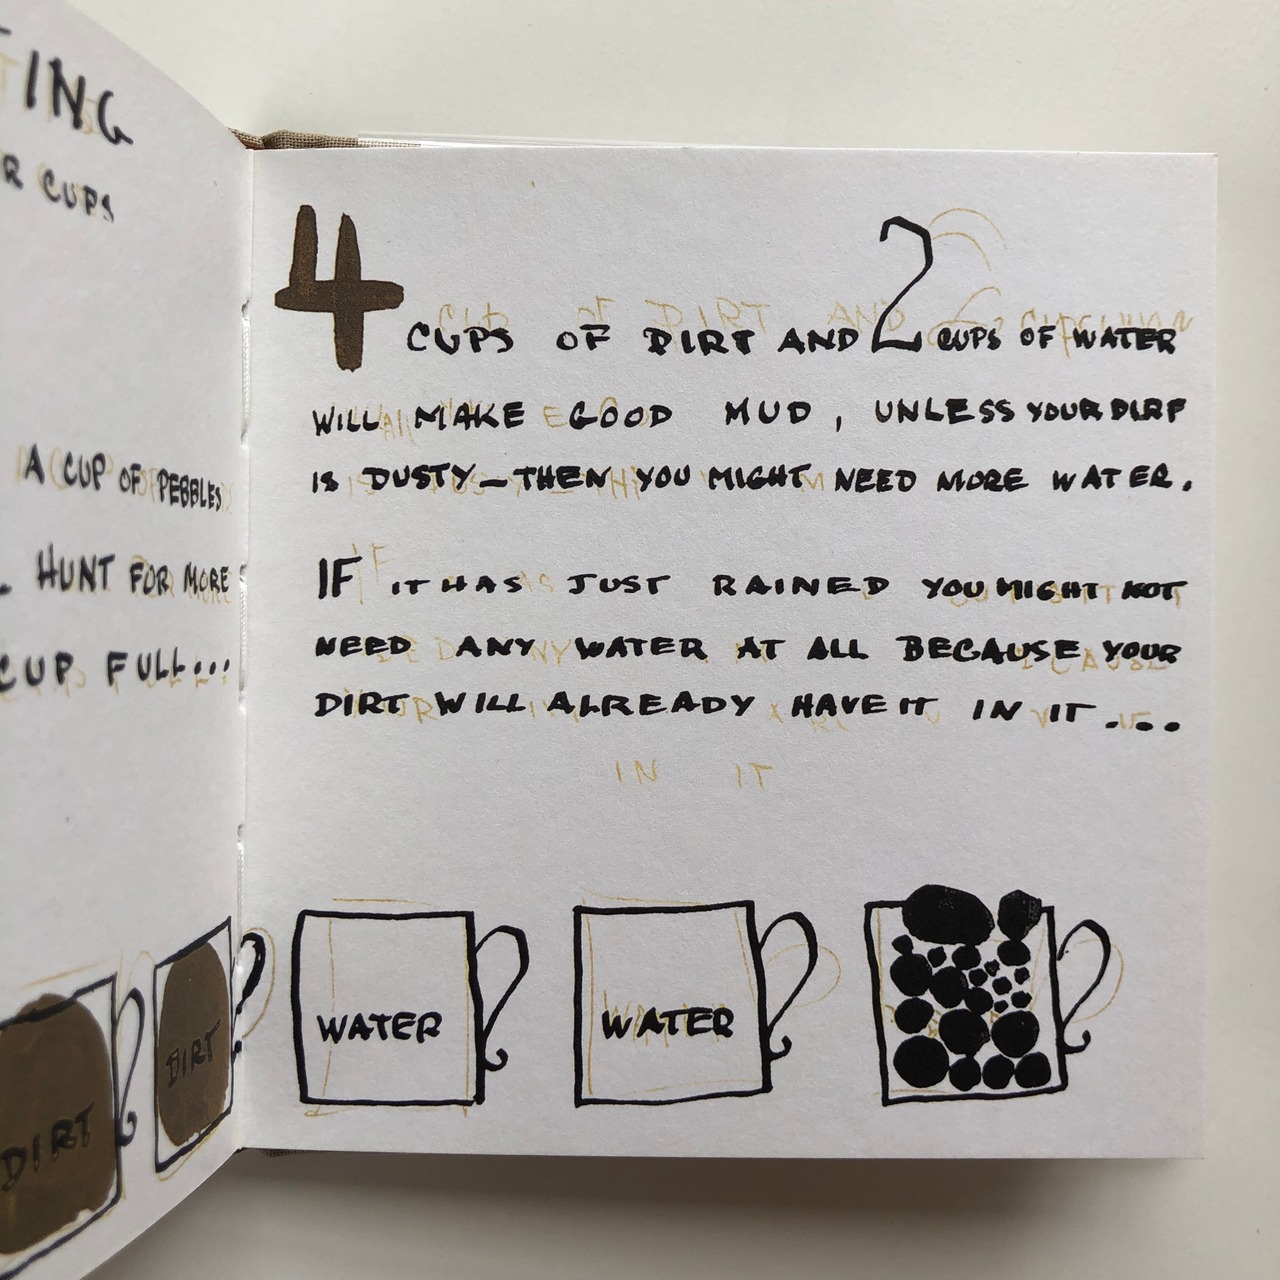 TING
R CUPS
A CUP OF PEBBLES
HUNT FOR MORE
CUP FULL...
DIRT
DIRT
4 CUPS OF DIRT AND 2 CUPS OF WATER
WILL MAKE GOOD MUD, UNLESS YOUR DIRT
IS DUSTY — THEN YOU MIGHT NEED MORE WATER.
IF IT HAS JUST RAINED YOU MIGHT NOT
NEED ANY WATER AT ALL BECAUSE YOUR
DIRT WILL ALREADY HAVE IT IN IT....
IN IT
WATER
WATER